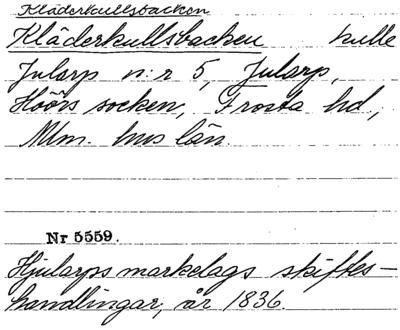 Kläderkullsbacken
Kläderkullsbacken kulle
Jularp n:r 5, Jularp,
Höörs socken, Frosta hd,
Mlm. hus län.
Nr 5559.
Hjularps markelags skiftes-
handlingar, år 1836.